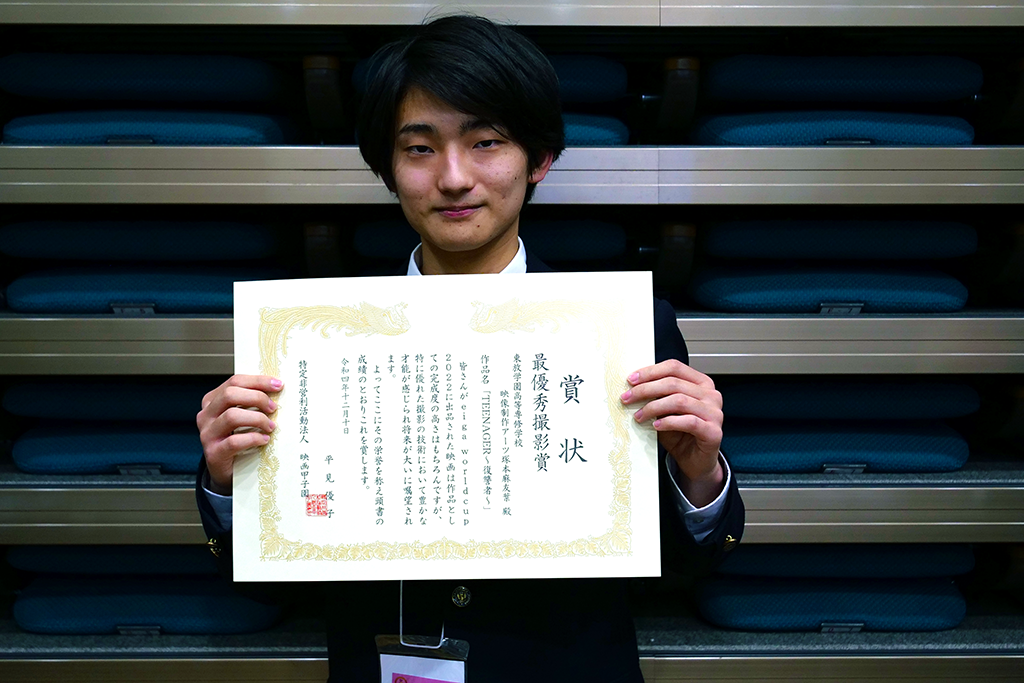 賞状
最優秀撮影賞
東放学園高等専修学校
映像制作アーツ塚本麻友葉 殿
作品名「TEENAGER～復讐者～」
皆さんがeiga worldcup
2022に出品された映画は作品とし
ての完成度の高さはもちろんですが、
特に優れた撮影の技術において豊かな
才能が感じられ将来が大いに嘱望され
ます。
よってここにその栄誉を称え頭書の
成績のとおりこれを賞します。
令和四年十二月十日
特定非営利活動法人 映画甲子園
平見優子